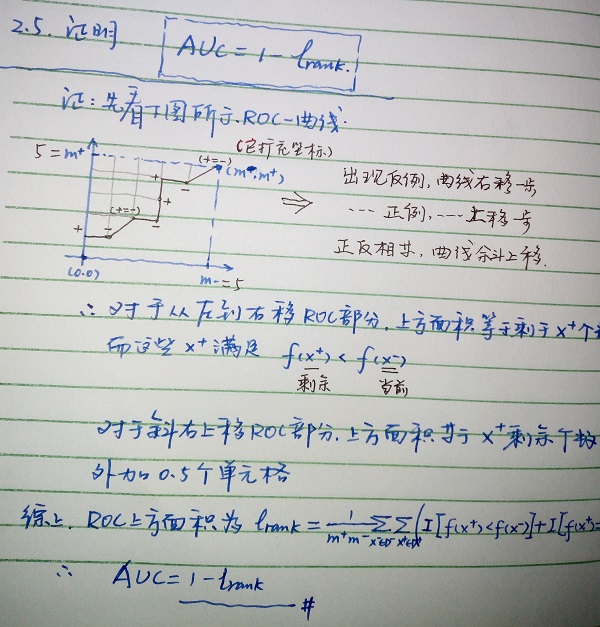 2.5. 证明
AUC = 1 - lrank.
证: 先看下图所示 ROC-曲线.
(它打在坐标)
5 = m+
(+=-)
(m-, m+)
+
-
(+=-)
+
+
-
-
+
-
(0.0)
m- = 5
⇒
出现反例, 曲线右移一步
---- 正例, ---- 上移一步
正反相等, 曲线斜上移.
∴ 对于从左到右移ROC部分, 上方面积等于剩于 x+ 个
而这些 x+ 满足 f(x+) < f(x-)
剩余 当前
对于斜右上移ROC部分. 上方面积等于 x+ 剩余个数
外加 0.5 个单元格
综上. ROC上方面积为 lrank = 1/(m+m-) ∑x-∈D- ∑x+∈D+ (I[f(x+)<f(x-)] + I[f(x+)=
∴ AUC = 1 - lrank
#